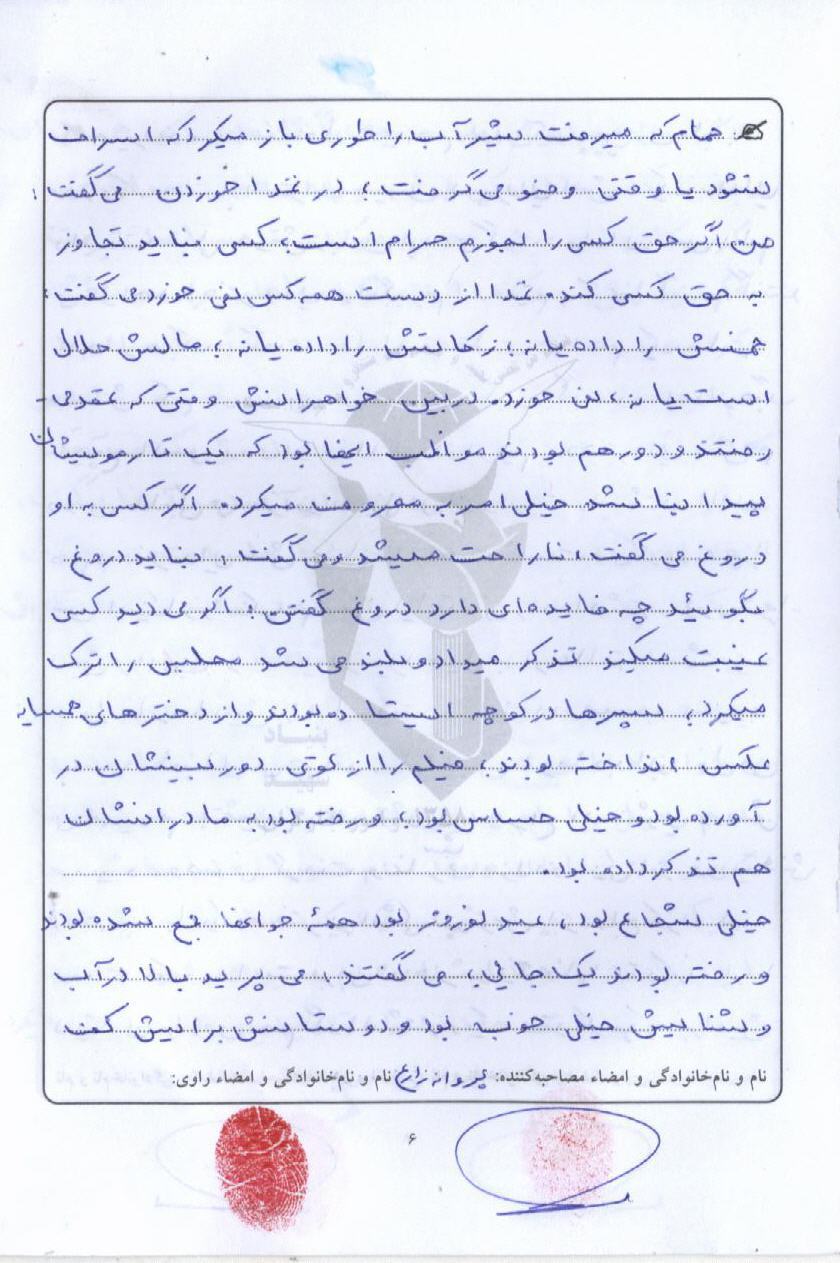 حمام که میرفت شیر آب را طوری باز میکرد که اسراف
نشود یا وقتی وضو می گرفت، در غذا خوردن می گفت:
من اگر حق کسی را بخورم حرام است، کسی نباید تجاوز
به حق کسی کند. غذا از دست همه کس نمی خورد می گفت،
خمسش را داده یا نه، زکاتش را داده یا نه، مالش حلال
است یا نه، نمی خورد. در بین خواهرانش وقتی که عقد می
رفتند و دور هم بودند مواظب اینها بود که یک تار مویشان
پیدا نباشد خیلی امر به معروف میکرد. اگر کسی به او
دروغ می گفت، ناراحت میشد و می گفت، نباید دروغ
بگوئید چه فایده ای دارد دروغ گفتن، اگر می دید کسی
غیبت میکند تذکر میداد و بلند می شد مجلس را ترک
میکرد، پسرها در کوچه ایستاده بودند و از دخترهای همسایه
عکس انداخته بودند، فیلم را از توی دوربینشان در
آورده بود و خیلی حساس بود، و رفته بود به مادرانشان
هم تذکر داده بود.
خیلی شجاع بود، عید نوروز بود همۀ جوانها جمع شده بودند
و رفته بودند یک جائی، می گفتند، می پرید بالا در آب
و شنایش خیلی خوب بود و دوستانش برایش کف
نام و نام‌خانوادگی و امضاء مصاحبه‌کننده: پروانه زارع نام و نام‌خانوادگی و امضاء راوی:
۶
بنیاد
شهید